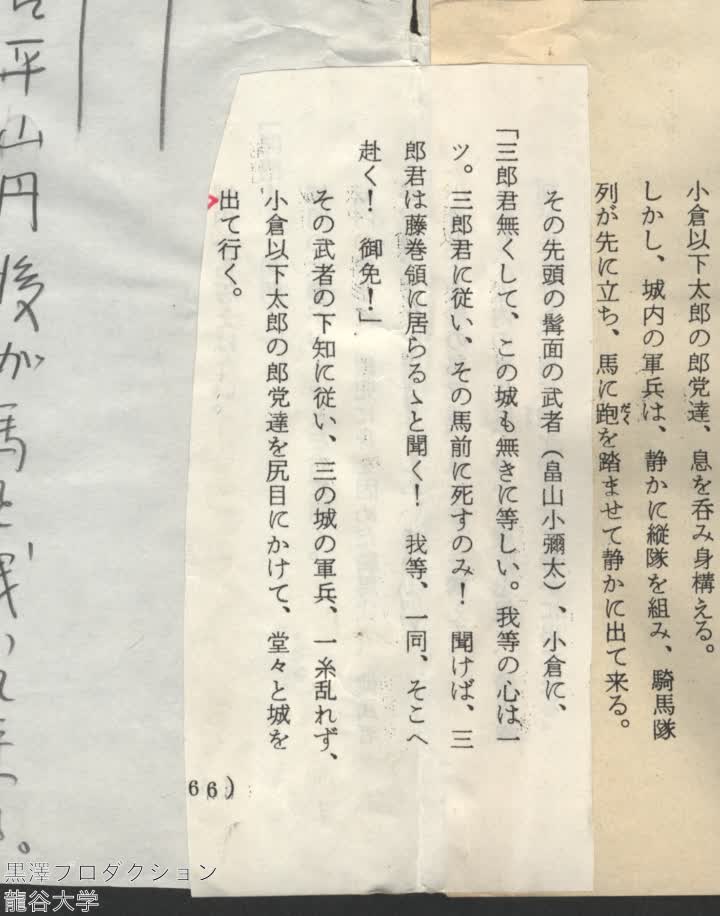 小倉以下太郎の郎党達、息を呑み身構える。
しかし、城内の軍兵は、静かに縦隊を組み、騎馬隊
列が先に立ち、馬に跑を踏ませて静かに出て来る。
だく
その先頭の髯面の武者（畠山小彌太）、小倉に、
「三郎君無くして、この城も無きに等しい。我等の心は一
ツ。三郎君に従い、その馬前に死すのみ！　聞けば、三
郎君は藤巻領に居らるゝと聞く！　我等、一同、そこへ
赴く！　御免！」
その武者の下知に従い、三の城の軍兵、一糸乱れず、
小倉以下太郎の郎党達を尻目にかけて、堂々と城を
出て行く。
66)
平山丹後が馬を
黒澤プロダクション
龍谷大学